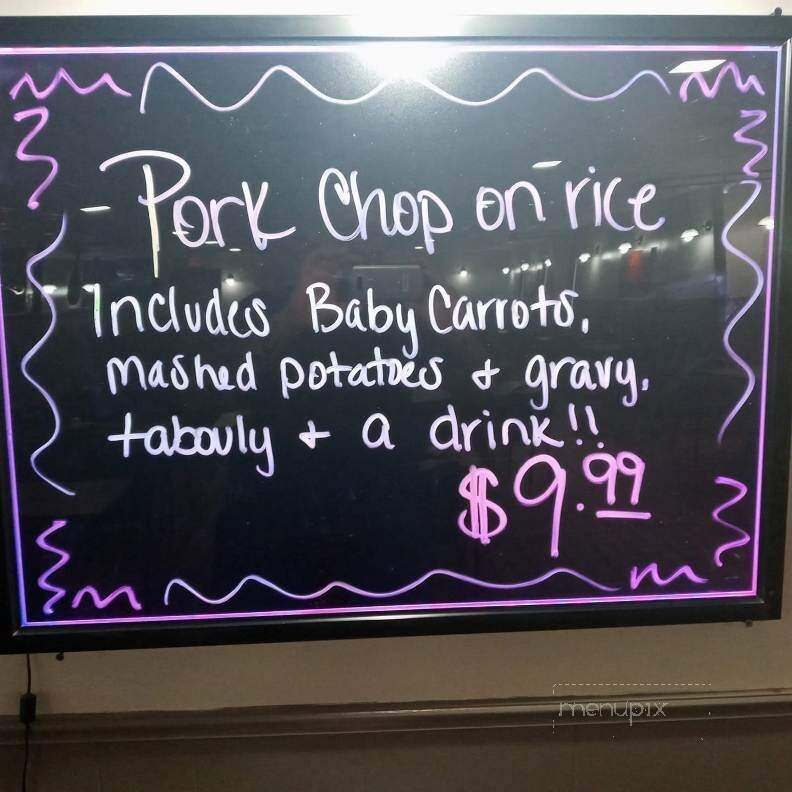 Pork Chop on rice
Includes Baby Carrots,
mashed potatoes & gravy,
tabouly & a drink!!
$9.99
menupix